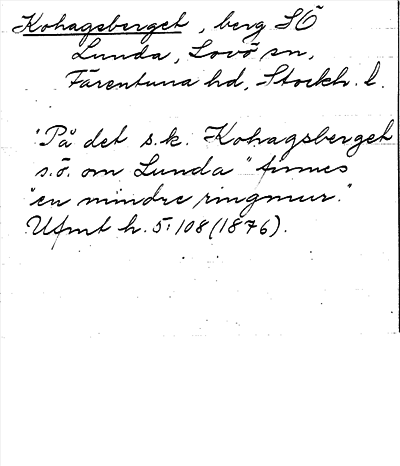 Kohagsberget, berg SÖ
Lunda, Lovö sn,
Färentuna hd, Stockh. l.
"På det s.k. Kohagsberget
s.ö. om Lunda" finnes
"en mindre ringmur."
UFmt h. 5:108 (1876).